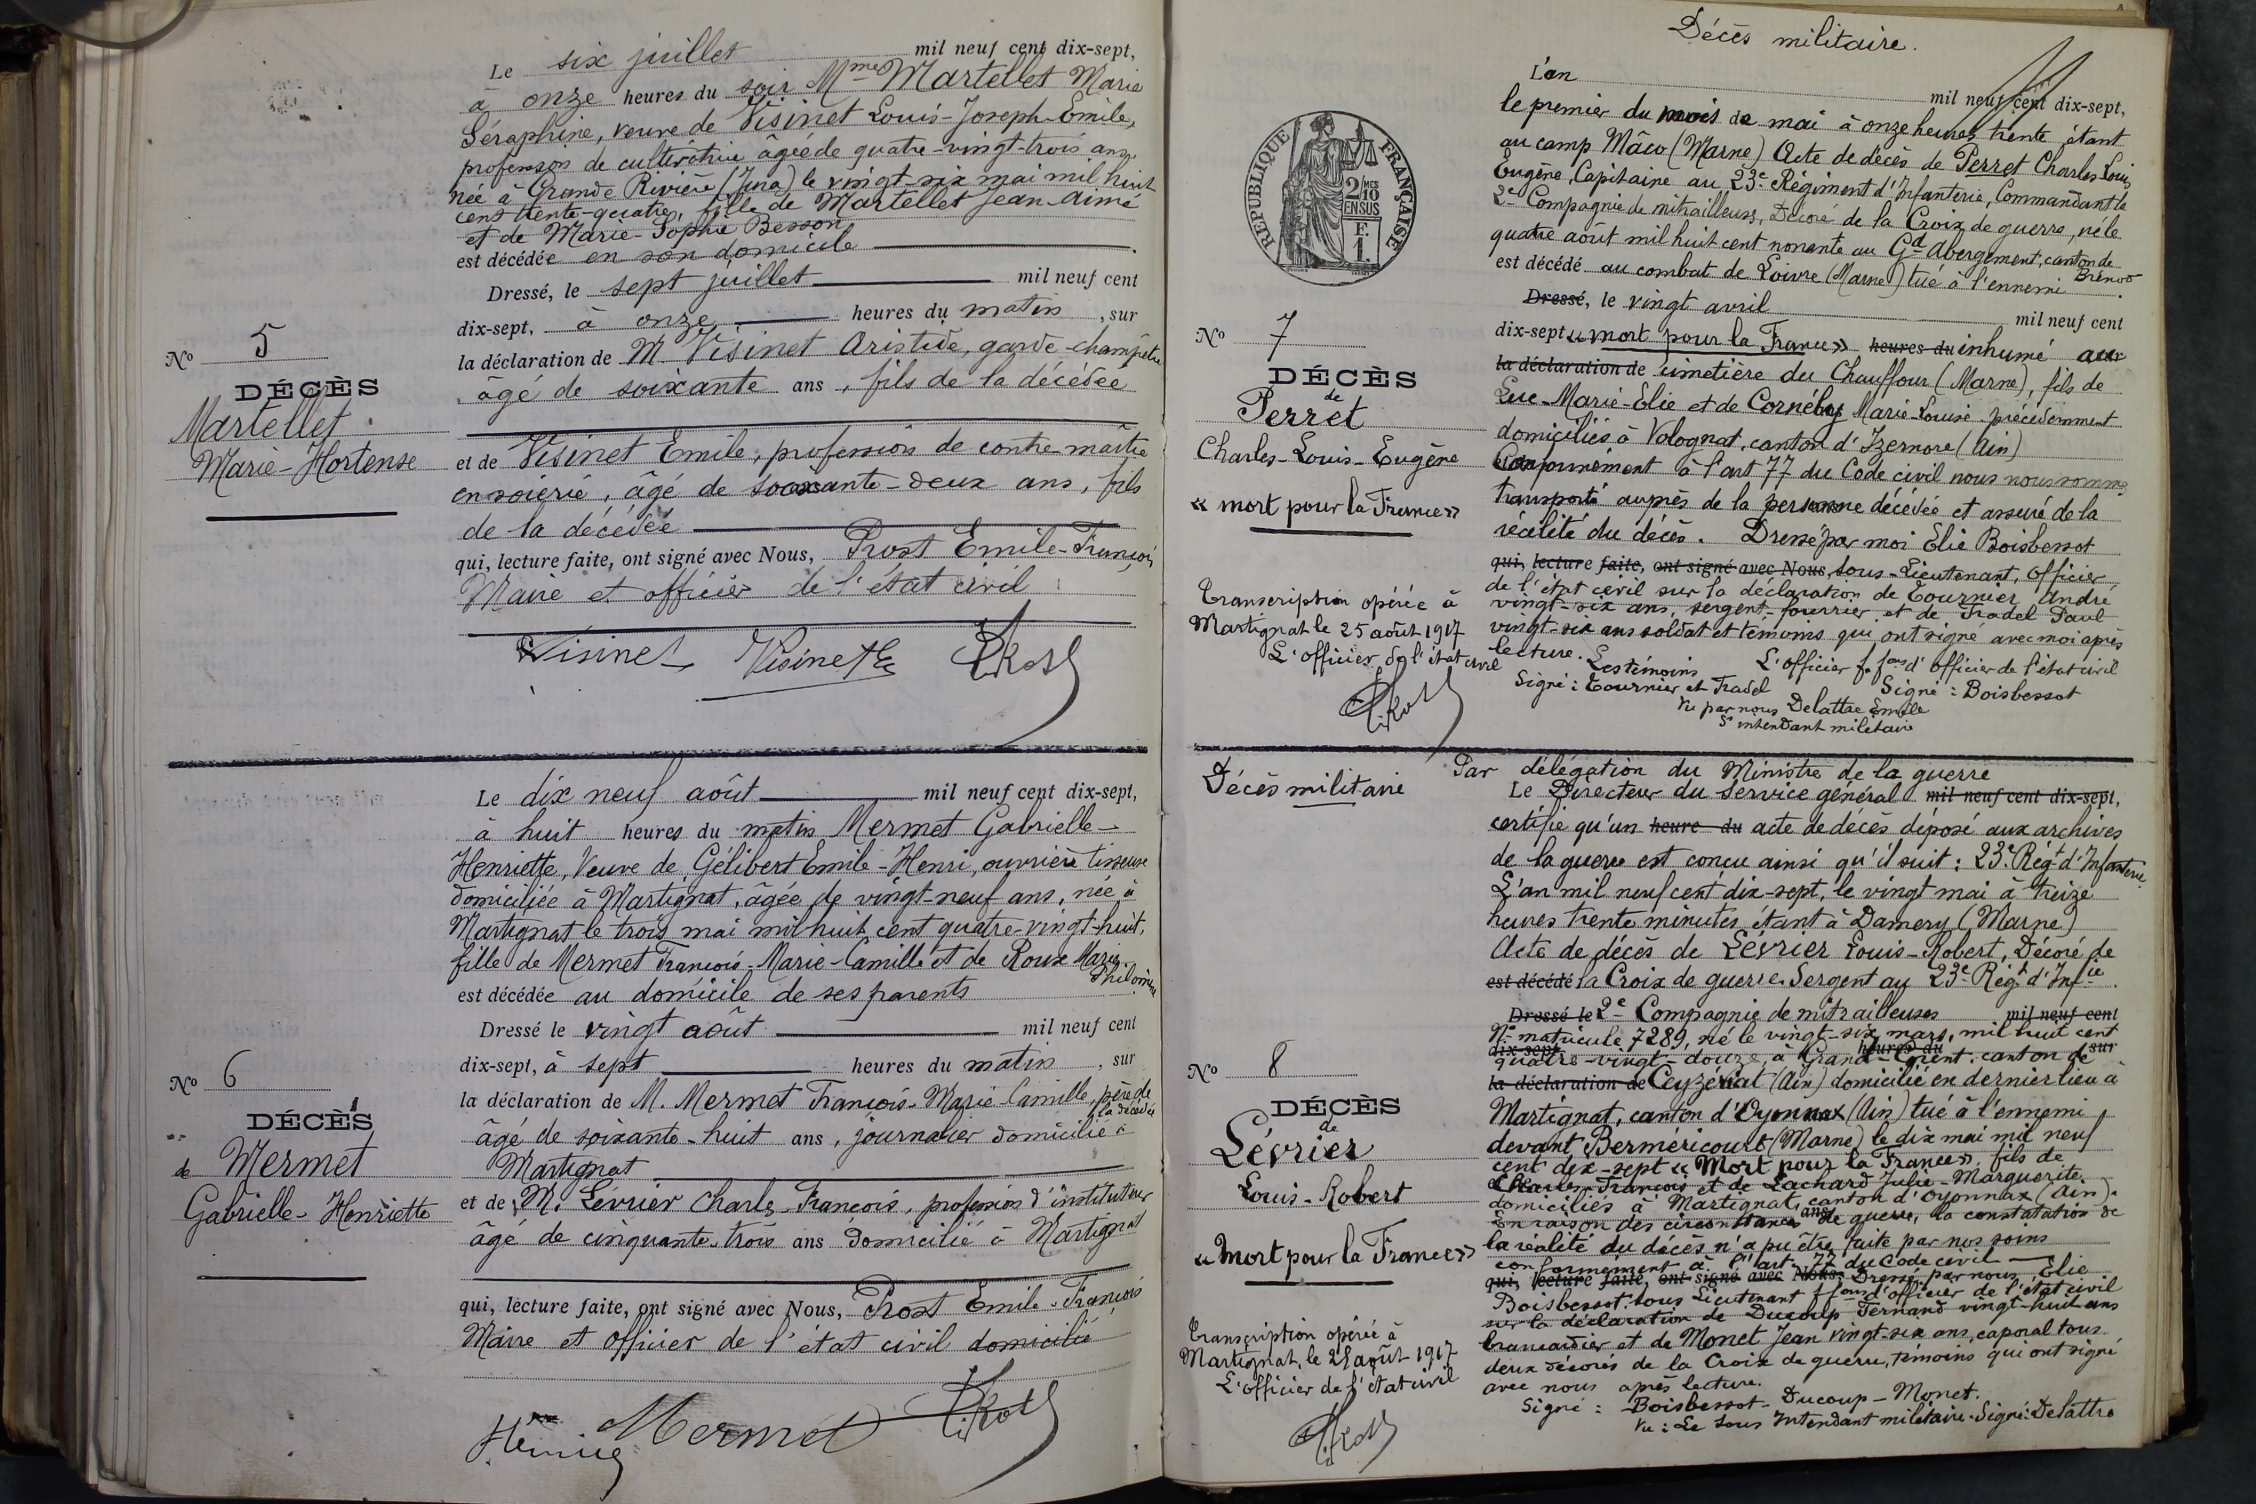 Le six juillet mil neuf cent dix-sept,
à onze heures du soir Mme Martellet Marie
Séraphine, veuve de Visinet Louis-Joseph-Emile,
profession de cultivatrice âgée de quatre-vingt-trois ans,
née à Grande Rivière (Jura) le vingt-six mai mil huit
cent trente-quatre, fille de Martellet Jean-Aimé
et de Marie-Sophie Besson
est décédée en son domicile
Dressé, le sept juillet mil neuf cent
dix-sept, à onze heures du matin, sur
la déclaration de M. Visinet Aristide, garde-champêtre
âgé de soixante ans, fils de la décédée
et de Visinet Emile, profession de contre-maître
en soierie, âgé de soixante-deux ans, fils
de la décédée
qui, lecture faite, ont signé avec Nous, Prost Emile-François,
Maire et officier de l'état civil
Visinet Visinet E Prost
No 5
DÉCÈS
Martellet
Marie-Hortense
Le dix neuf août mil neuf cent dix-sept,
à huit heures du matin Mermet Gabrielle-
Henriette, Veuve de Gélibert Emile-Henri, ouvrière tisseuse
domiciliée à Martignat, âgée de vingt-neuf ans, née à
Martignat le trois mai mil huit cent quatre-vingt-huit,
fille de Mermet François-Marie-Camille et de Roux Marie-
Philomène
est décédée au domicile de ses parents
Dressé le vingt août mil neuf cent
dix-sept, à sept heures du matin, sur
la déclaration de M. Mermet François-Marie-Camille, père de
la décédée
âgé de soixante-huit ans, journalier domicilié à
Martignat
et de M. Lévrier Charles-François, profession d'instituteur
âgé de cinquante-trois ans domicilié à Martignat
qui, lecture faite, ont signé avec Nous, Prost Emile-François
Maire et officier de l'état civil domicilié
Mermet Prost
No 6
DÉCÈS
de Mermet
Gabrielle-Henriette
Décès militaire.
L'an mil neuf cent dix-sept,
le premier du mois de mai à onze heures trente étant
au camp Mâco (Marne) Acte de décès de Perret Charles Louis
Eugène, Capitaine au 23e Régiment d'Infanterie, Commandant la
2e Compagnie de mitrailleuses, Décoré de la Croix de guerre, né le
quatre août mil huit cent nonante au Gd Abergement, canton de
Brénod
est décédé au combat de Loivre (Marne) tué à l'ennemi
Dressé, le vingt avril mil neuf cent
dix-sept « mort pour la France » heures du inhumé au
la déclaration de cimetière du Chauffour (Marne), fils de
Luc-Marie-Elie et de Cornéby Marie-Louise précédemment
domiciliés à Volognat, canton d'Izernore (Ain)
Conformément à l'art 77 du Code civil nous nous sommes
transporté auprès de la personne décédée et assuré de la
réalité du décès. Dressé par moi Elie Boisbessot
qui, lecture faite, ont signé avec Nous, sous-Lieutenant, officier
de l'état civil sur la déclaration de Tournier André
vingt-six ans, sergent-fourrier et de Tradel Paul
vingt-six ans soldat et témoins qui ont signé avec moi après
lecture. Les témoins L'officier f. fons d'officier de l'état civil
Signé : Tournier et Tradel Signé : Boisbessot
Vu par nous Delattre Emile
Ss intendant militaire
REPUBLIQUE FRANÇAISE
2/10
MES
EN SUS
F.
1.
No 7
DÉCÈS
de
Perret
Charles-Louis-Eugène
« mort pour la France »
Transcription opérée à
Martignat le 25 août 1917
L'officier de l'état civil
Prost
Décès militaire
Par délégation du Ministre de la guerre
Le Directeur du Service général mil neuf cent dix-sept,
certifie qu'un heure du acte de décès déposé aux archives
de la guerre est conçu ainsi qu'il suit : 23e Régt d'Infanterie
L'an mil neuf cent dix-sept, le vingt mai à treize
heures trente minutes, étant à Damery (Marne)
Acte de décès de Lévrier Louis-Robert, Décoré de
est décédé la Croix de guerre. Sergent au 23e Régt d'Infie
Dressé le 2e Compagnie de mitrailleuses mil neuf cent
No matricule 7289, né le vingt-six mars, mil huit cent
dix-sept heures du sur
quatre-vingt-douze à Grand-Corent, canton de
la déclaration de Ceyzériat (Ain) domicilié en dernier lieu à
Martignat, canton d'Oyonnax (Ain) tué à l'ennemi
devant Berméricourt (Marne) le dix mai mil neuf
cent dix-sept « Mort pour la France », fils de
Charles-François et de Lachard Julie-Marguerite
domiciliés à Martignat, canton d'Oyonnax (Ain).
En raison des circonstances de guerre, la constatation de
la réalité du décès n'a pu être faite par nos soins
conformément à l'art. 77 du Code civil
qui, lecture faite, ont signé avec Nous. Dressé par nous Elie
Boisbessot sous Lieutenant f fons d'officier de l'état civil
sur la déclaration de Ducoup Fernand vingt-huit ans
brancardier et de Monet Jean vingt-six ans, caporal tous
deux décorés de la Croix de guerre, témoins qui ont signé
avec nous après lecture.
Signé : Boisbessot - Ducoup - Monet.
Vu : Le Sous Intendant militaire. Signé : Delattre
No 8
DÉCÈS
de
Lévrier
Louis-Robert
« Mort pour la France »
Transcription opérée à
Martignat, le 25 août 1917
L'officier de l'état civil
Prost